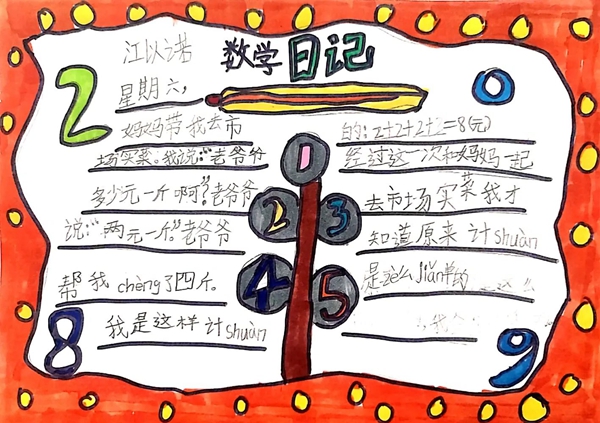 江以诺
数学日记
星期六,
妈妈节我去市
场实菜。我说:“老爷爷
多少元一斤啊?”老爷爷
说:“两元一斤。”老爷爷
帮我chèng了四斤。
我是这样计shuàn
的:2+2+2+2=8(元)
经过这一次和妈妈一起
去市场实菜我才
知道原来计shuàn
是zè么jiǎn单的
2
0
1
2
3
4
5
8
9